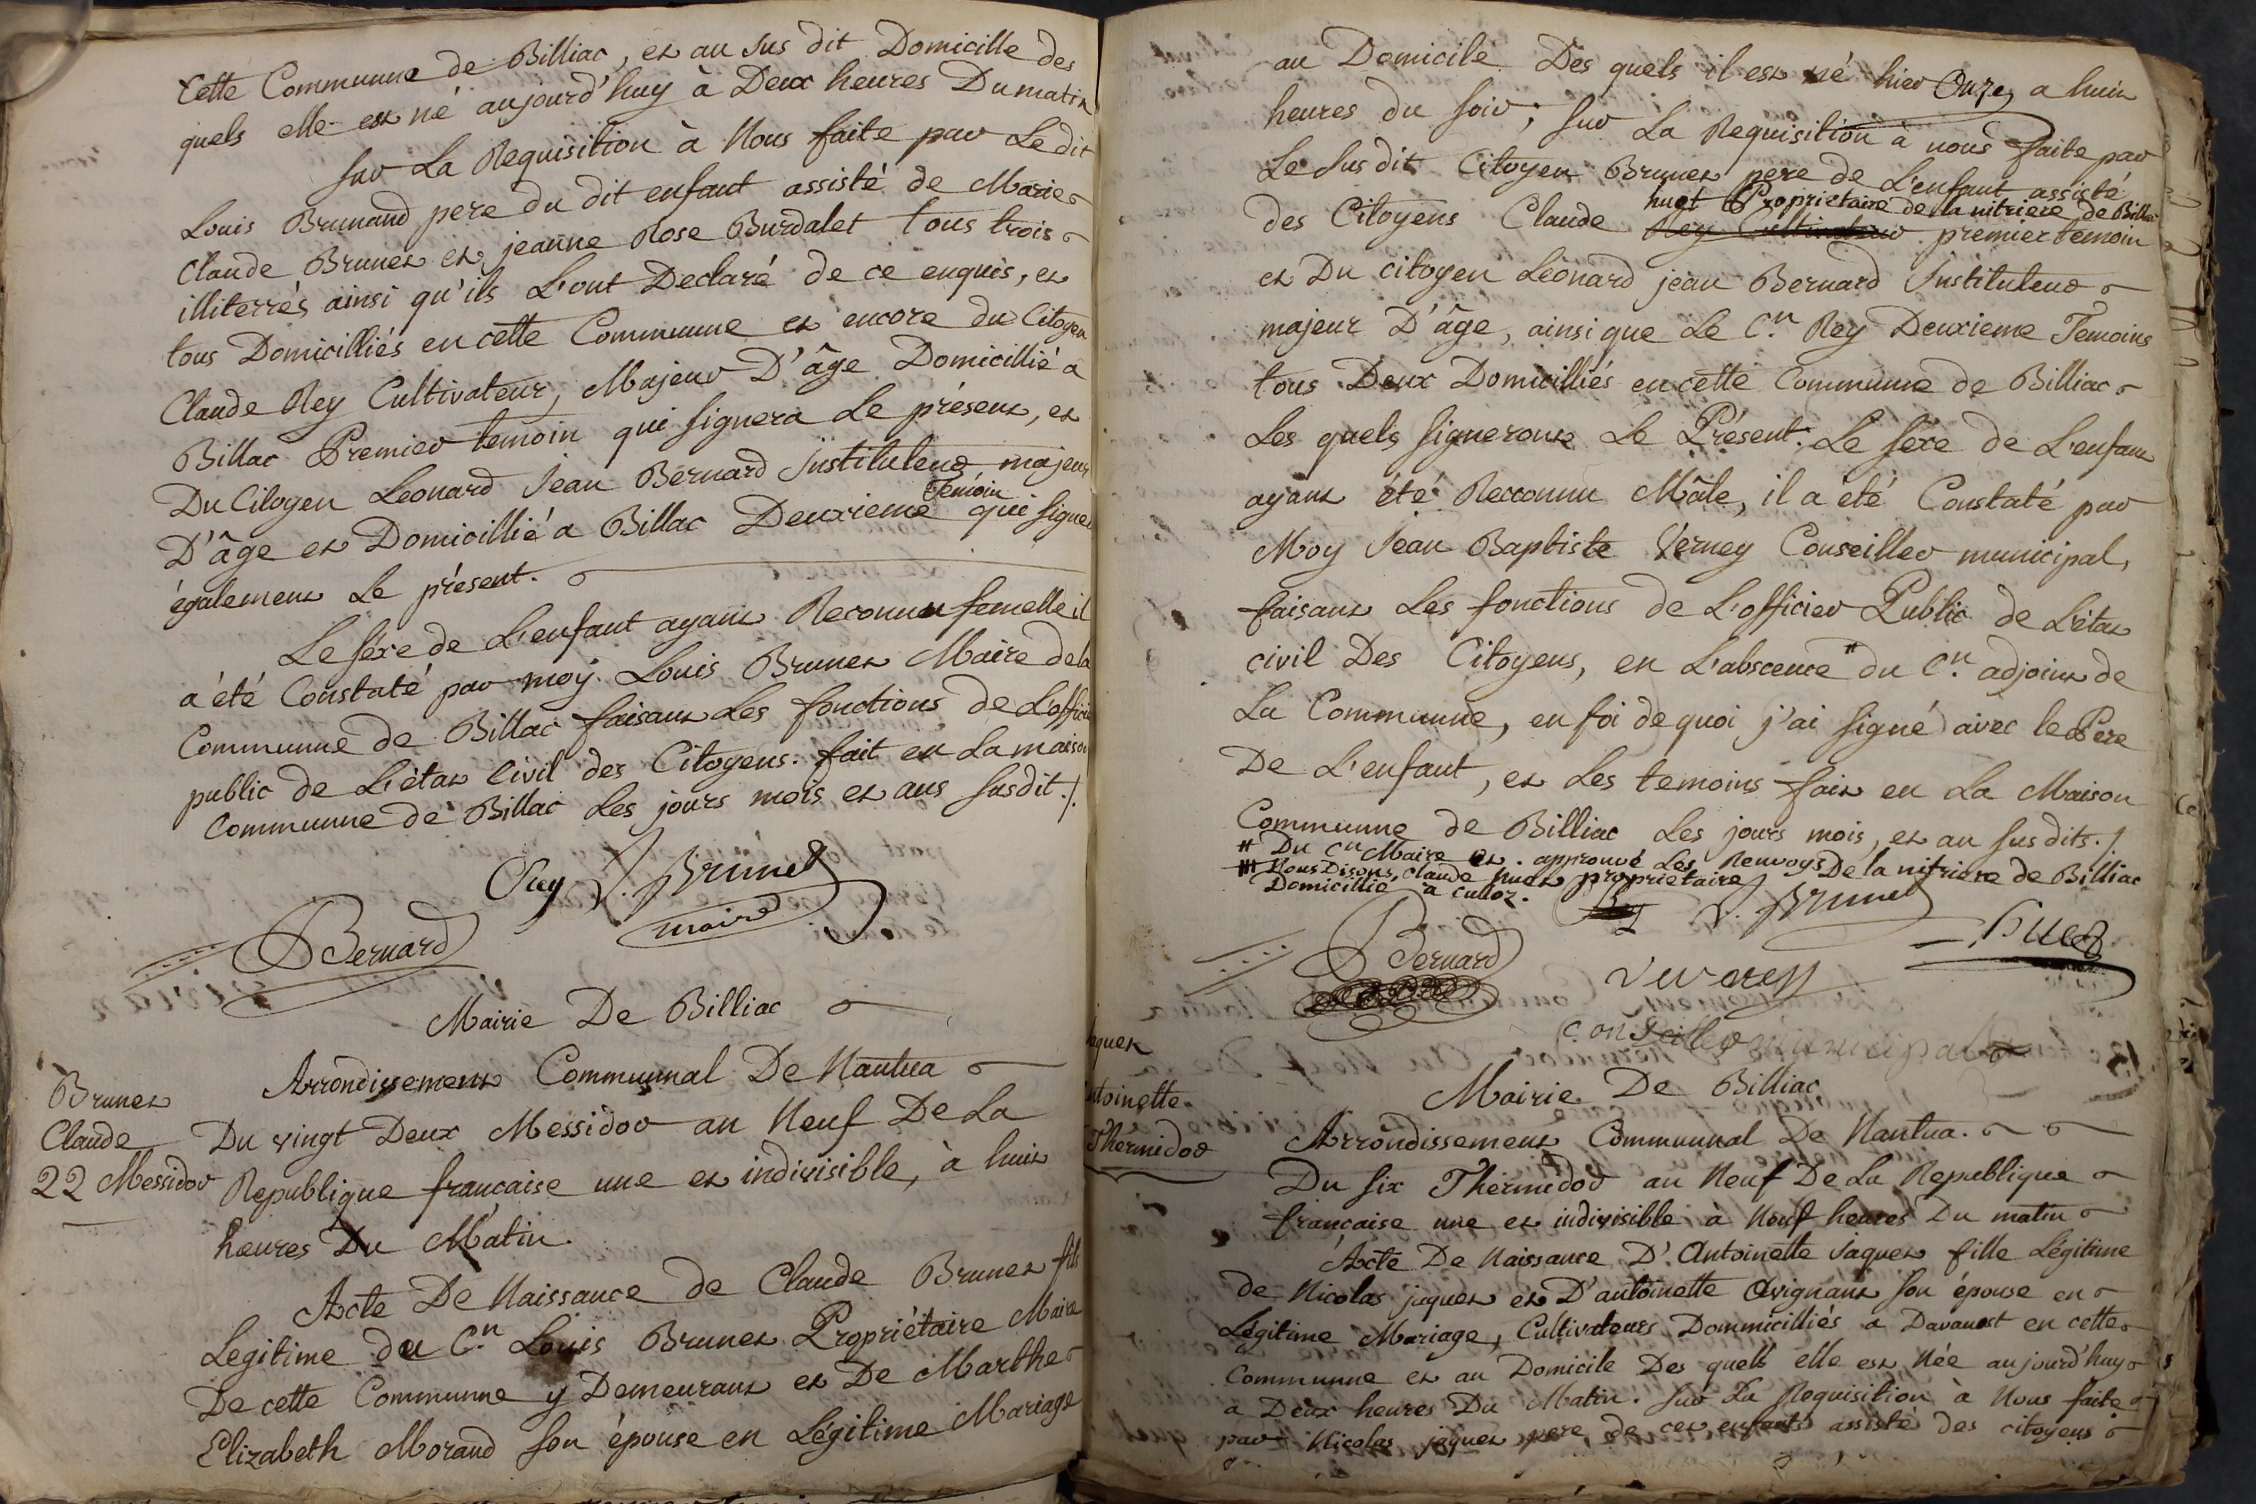 Cette Communne de Billiac, et au sus dit Domicille des
quels elle est né aujourd'huy à Deux heures Du matin
sur La Requisition à Nous faite par Le dit
Louis Brunand pere du dit enfant assisté de Marie
Claude Brunet et jeanne Rose Burdalet tous trois
illiterrés ainsi qu'ils L'ont Declaré de ce enquis, et
tous Domicilliés en cette Communne et encore du Citoyen
Claude Rey Cultivateur, Majeur D'âge Domicillié a
Billac Premier temoin qui signera Le présent, et
Du Citoyen Leonard Jean Bernard instituteur majeur
D'âge et Domicillié a Billac Deuxieme Temoin qui signe
également Le présent.
Le séxe de L'enfant ayant Reconnu femelle il
a été Constaté par moy Louis Brunet Maire de la
Communne de Billac faisant Les fonctions de L'offici
public de L'état Civil des Citoyens. fait en La maison
Communne de Billac Les jours mois et ans susdit ./.
Rey L. Brunet
maire
Bernard
Mairie De Billiac
Arrondissement Communnal De Nantua
Brunet
Claude
22 Messidor
Du vingt Deux Messidor an Neuf De La
Republique francaise une et indivisible, à huit
heures Du Matin.
Acte De Naissance de Claude Brunet fils
Legitime du C.n Louis Brunet Propriétaire Maire
De cette Communne y Demeurant et De Marthe
Elizabeth Morand son épouse en Légitime Mariage
au Domicile Des quels il est né hier Onze, a huit
heures du soir, sur La Requisition à nous faite par
Le sus dit Citoyen Brunet pere de L'enfant assisté
huet Propriétaire de la nitriere de Billac
des Citoyens Claude Rey Cultivateur premier temoin
et Du citoyen Léonard jean Bernard Instituteur
majeur D'âge, ainsi que Le C.n Rey Deuxieme Temoins
tous Deux Domicilliés en cette Communne de Billiac
Les quels signeront Le Présent. Le séxe de L'enfant
ayant été Reconnu Mâle, il a été Constaté par
Moy Jean Baptiste Verney Conseiller municipal,
faisant Les fonctions de L'officier Public de L'état
civil Des Citoyens, en L'abscence # du C.n adjoint de
La Communne, en foi de quoi j'ai signé avec le Pere
De L'enfant, et Les temoins fait en La Maison
Communne de Billiac Les jours mois, et an sus dits. /.
# Du C.n Maire et. approuvé Les Renvoys
Nous Disons, Claude huet propriétaire De la nitriere de Billiac
Domicillié à Culloz.
Rey L. Brunet
huet
Bernard
Verney
Conseiller municipal
Mairie De Billiac
Arrondissement Communnal De Nantua.
aquet
ntoinette
Thermidor
Du six Thermidor an Neuf De La Republique
francaise une et indivisible à Neuf heures Du matin
Acte De Naissance D'Antoinette Jaquet fille Légitime
de Nicolas jaquet et D'antoinette Avignant son épouse en
Légitime Mariage, Cultivateurs Dommicilliés a Davanot en cette
Communne et au Domicile Des quels elle est Née aujourd'huy
a Deux heures Du Matin. Sur La Requisition à Nous faite
par Nicolas jaquet pere, de cet enfant assisté des citoyens